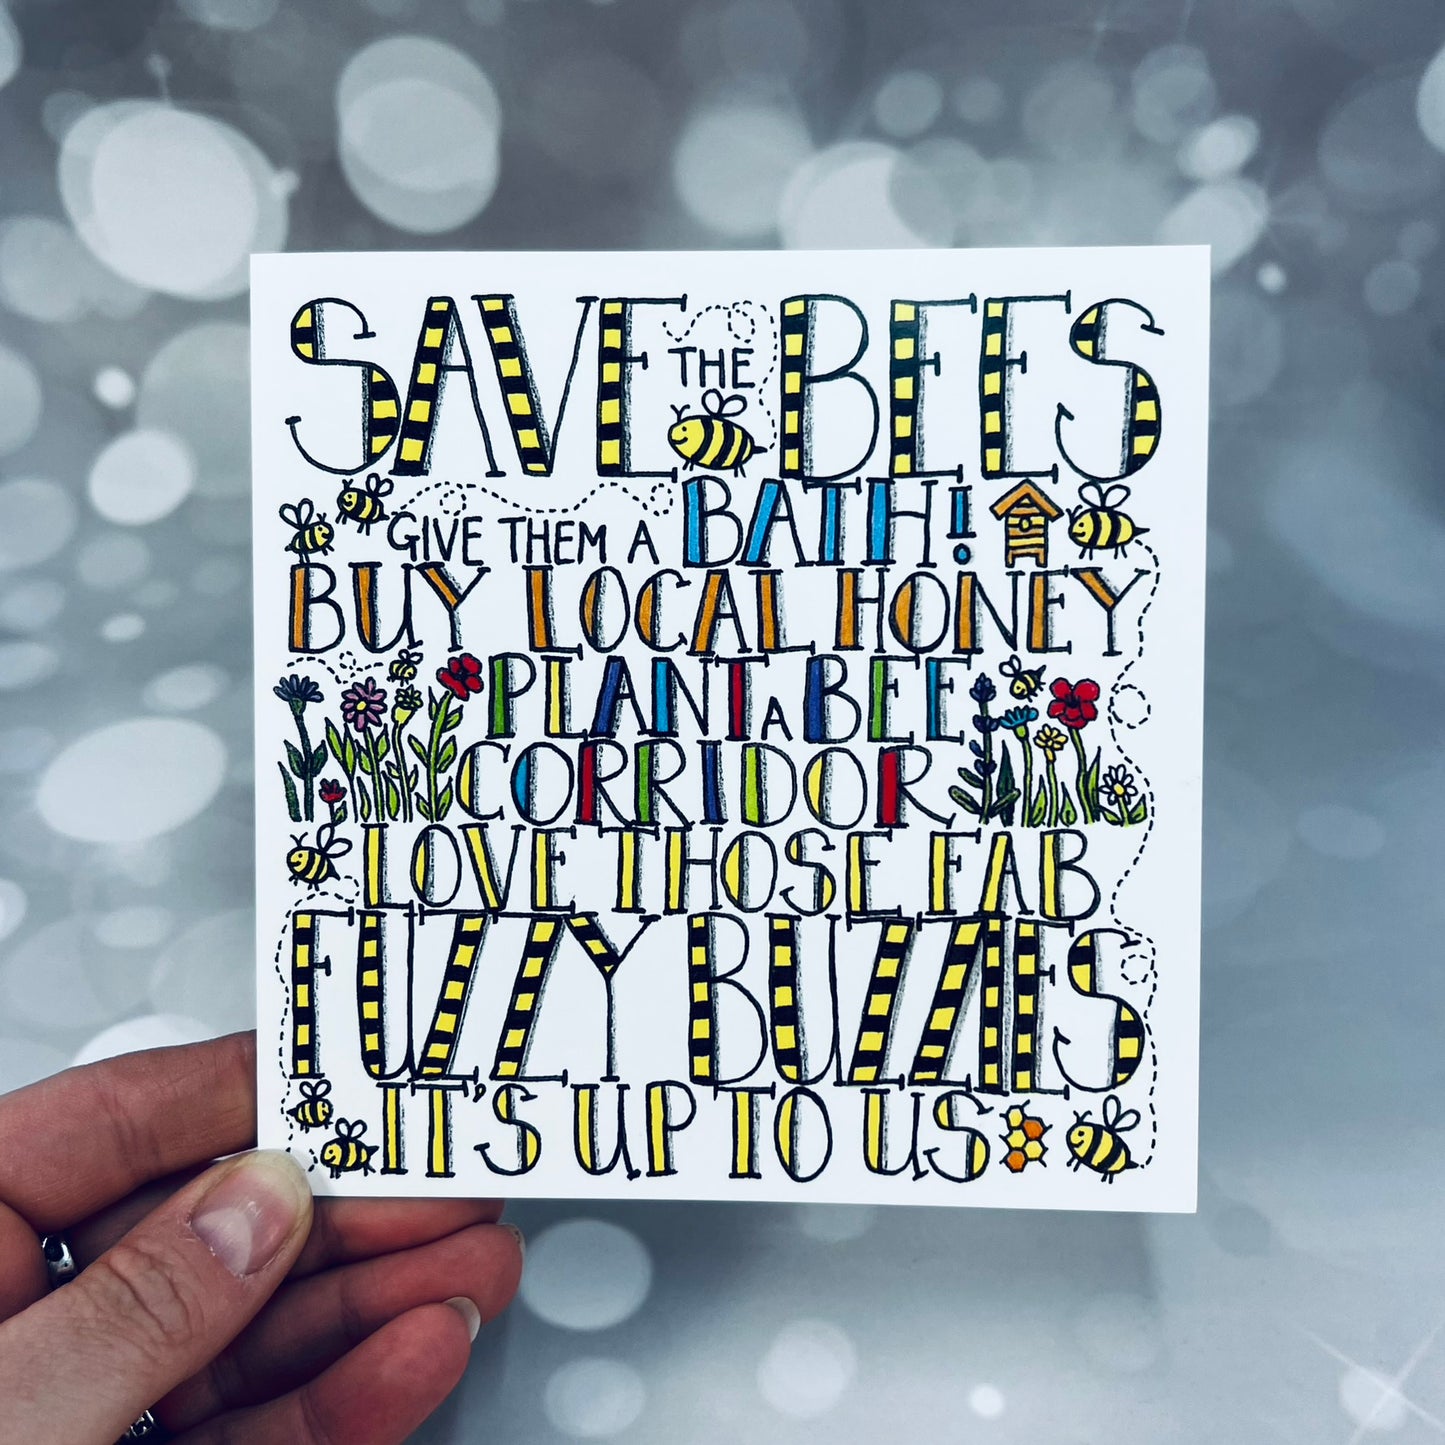 SAVE THE BEES
GIVE THEM A BATH!
BUY LOCAL HONEY
PLANT A BEE
CORRIDOR
LOVE THOSE FAB
FUZZY BUZZIES
IT'S UP TO US